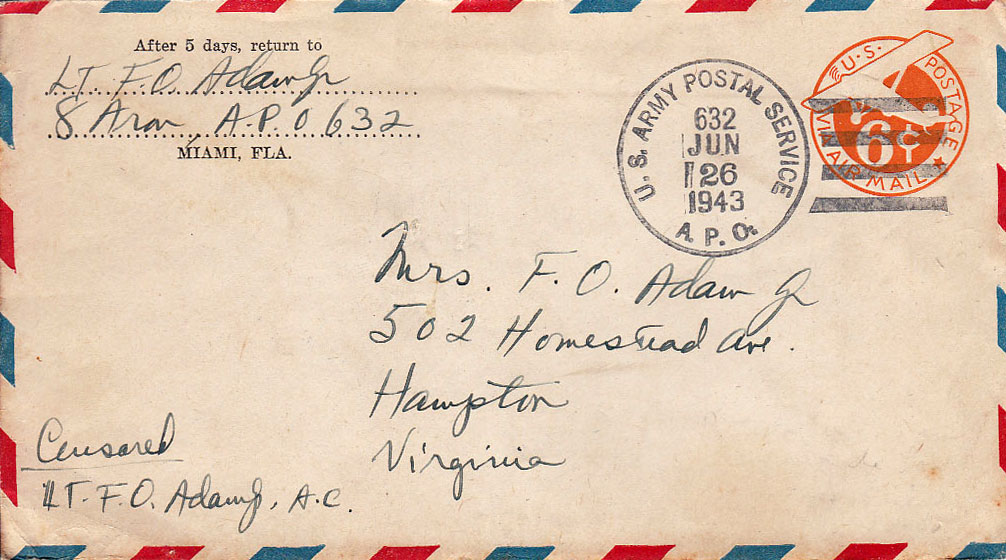 After 5 days, return to
LT F. O. Adam Jr
8 Aron A.P.O 632
MIAMI, FLA.
U. S. ARMY POSTAL SERVICE
632
JUN
26
1943
A. P. O.
U.S. POSTAGE
6¢
VIA AIR MAIL
Mrs. F. O. Adam Jr
502 Homestead Ave.
Hampton
Virginia
Censored
LT. F. O. Adam Jr, A.C.